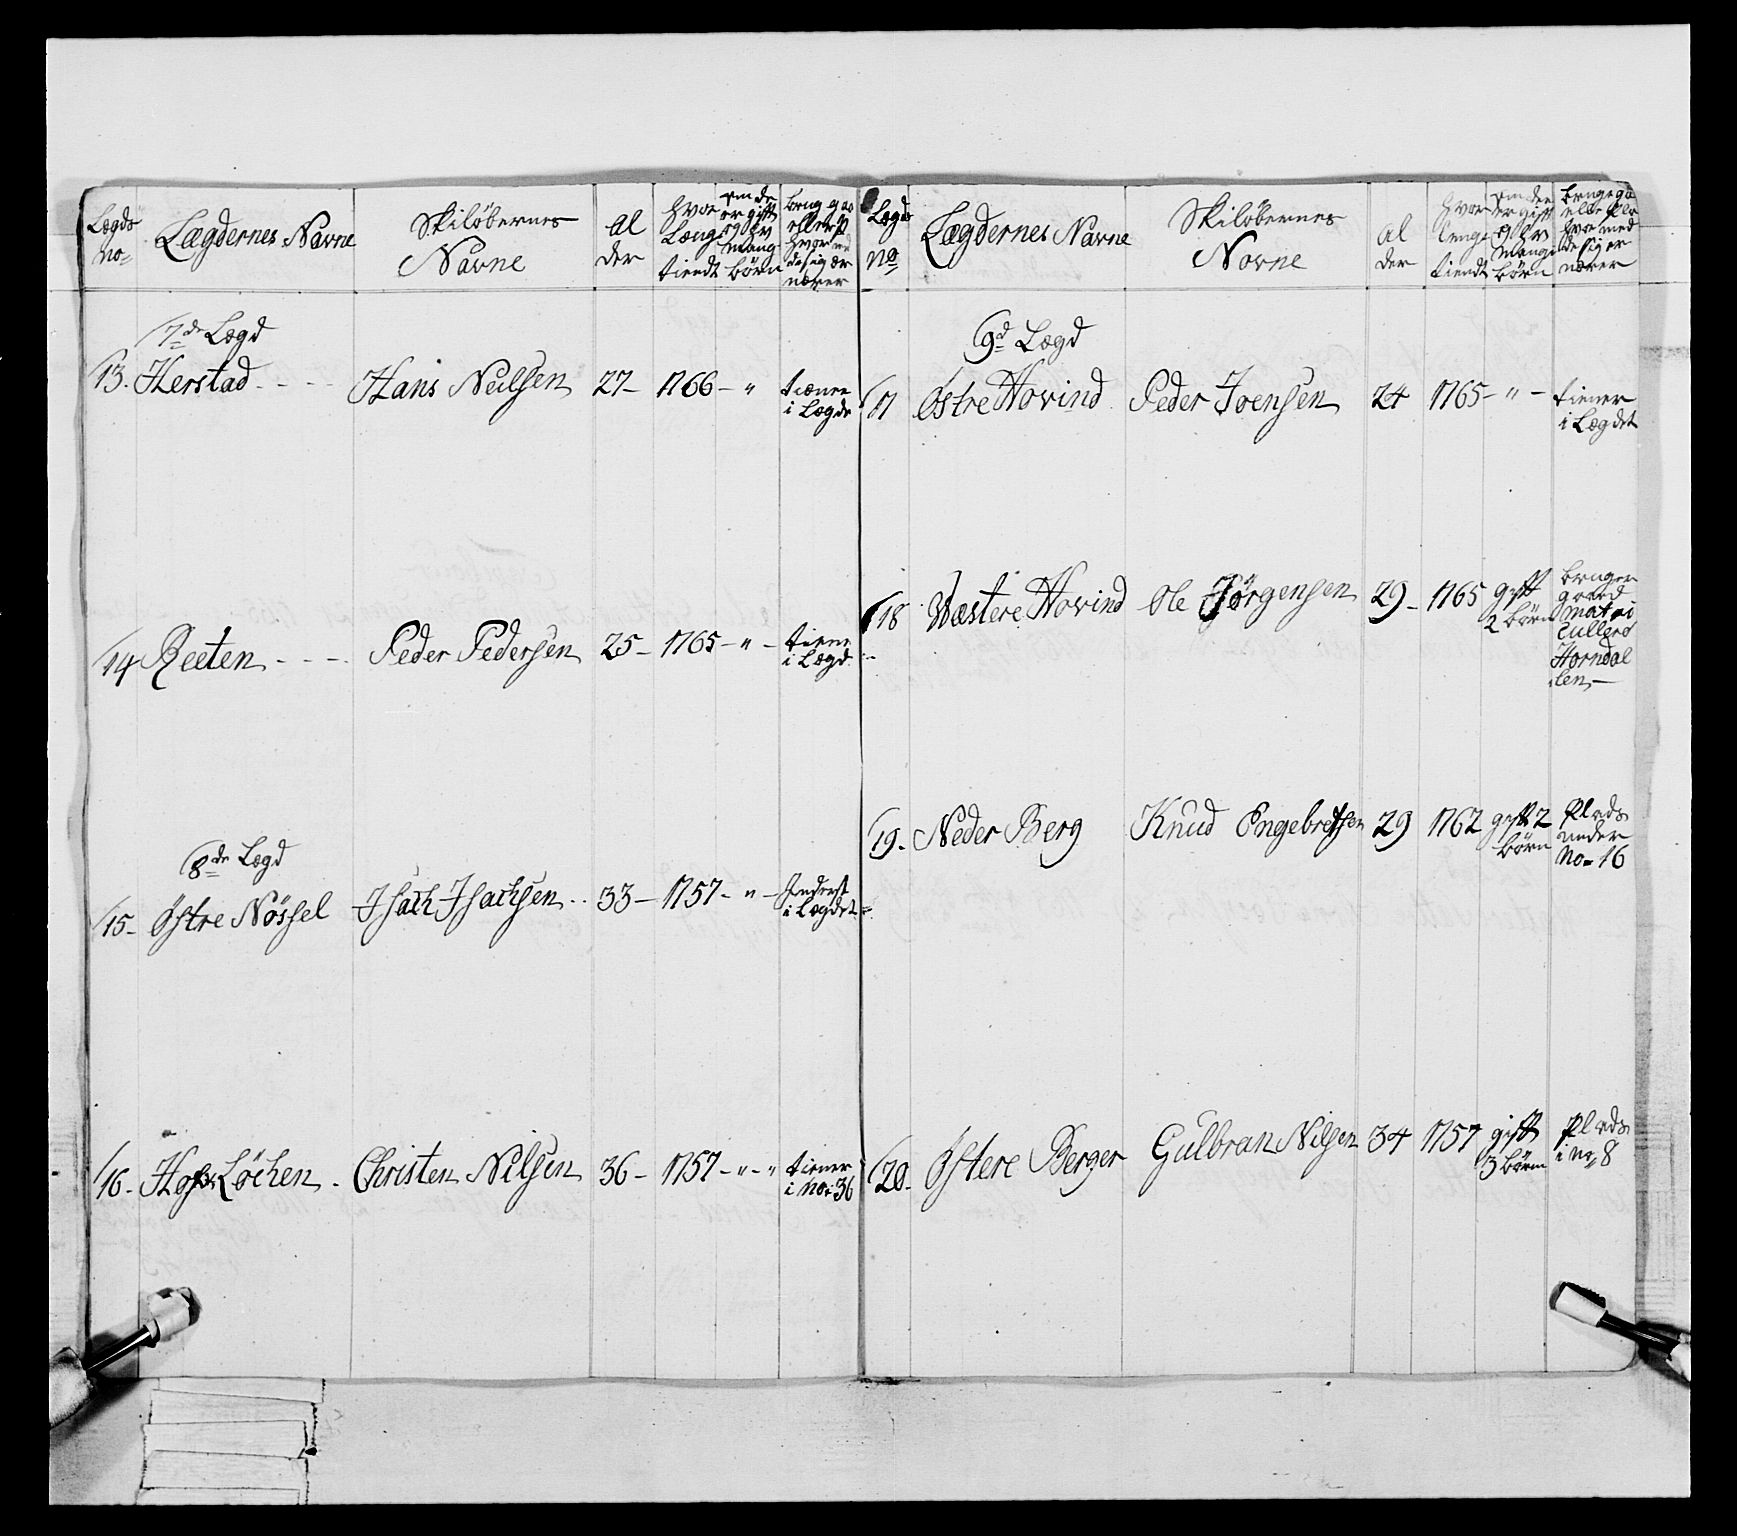 Lægds no= Lægdernes Navne Skilöbernes Navne Al der hvor Længe tiendt om de er gift og hv mang börn
7de Lægd
13. Herstad - - - Hans Nulsen 27 - 1766 - " tiener i Lægde
14 Reeten - - - Peder Pedersen 25 - 1765 - " - tiener i Lægd
8de Lægd
15 - Östre Nössel Isach Isachsen .. 33 - 1757 - " - Inderst i Lægdet
16 - Löchen . Christen Nilsen 36 - 1757 - " - " tiener i No: 36
Lægds No Lægdernes Navne Skilöbernes Novne al der hvor lenge tiendt om de er gift og hv mange börn
9d Lægd
17 Östre Hovind Peder Joensen 24 1765 - " - tiener i Lægdet
18 Wæstere Hovind Ole Jörgensen 29 - 1765 gift 2 börn bruger gaard Horndal len -
19. Neder Berg Knud Engebretsen 29 1762 gift 2 börn Plads under No= 16
20. Östere Berger Gulbran Nilsen 34 1757 gift 3 börn Plads i No 8